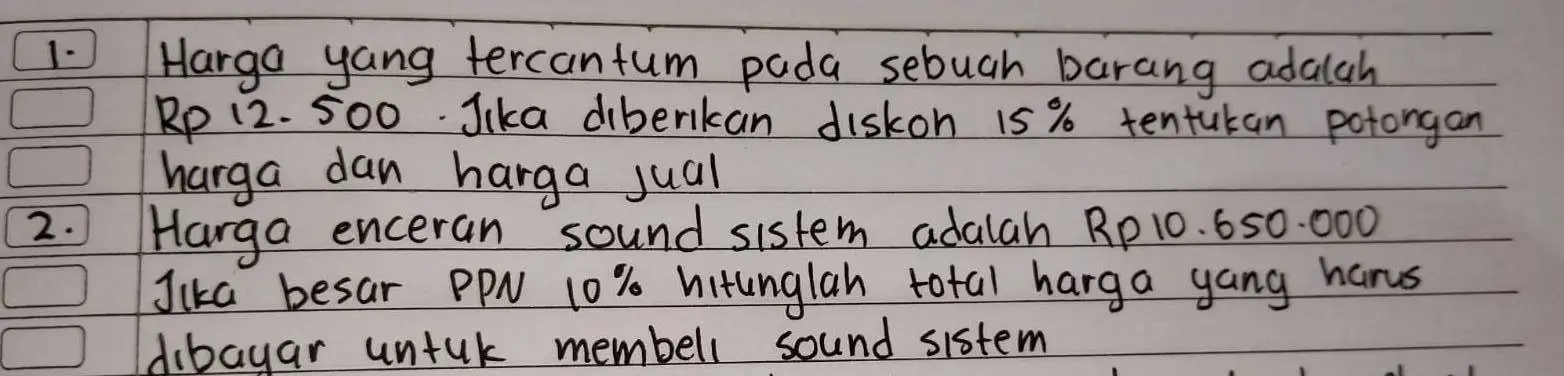 1. Harga yang tercantum pada sebuah barang adalah
Rp 12.500. Jika diberikan diskon 15% tentukan potongan
harga dan harga jual
2. Harga enceran sound sistem adalah Rp 10.650.000
Jika besar PPN 10% hitunglah total harga yang harus
dibayar untuk membeli sound sistem